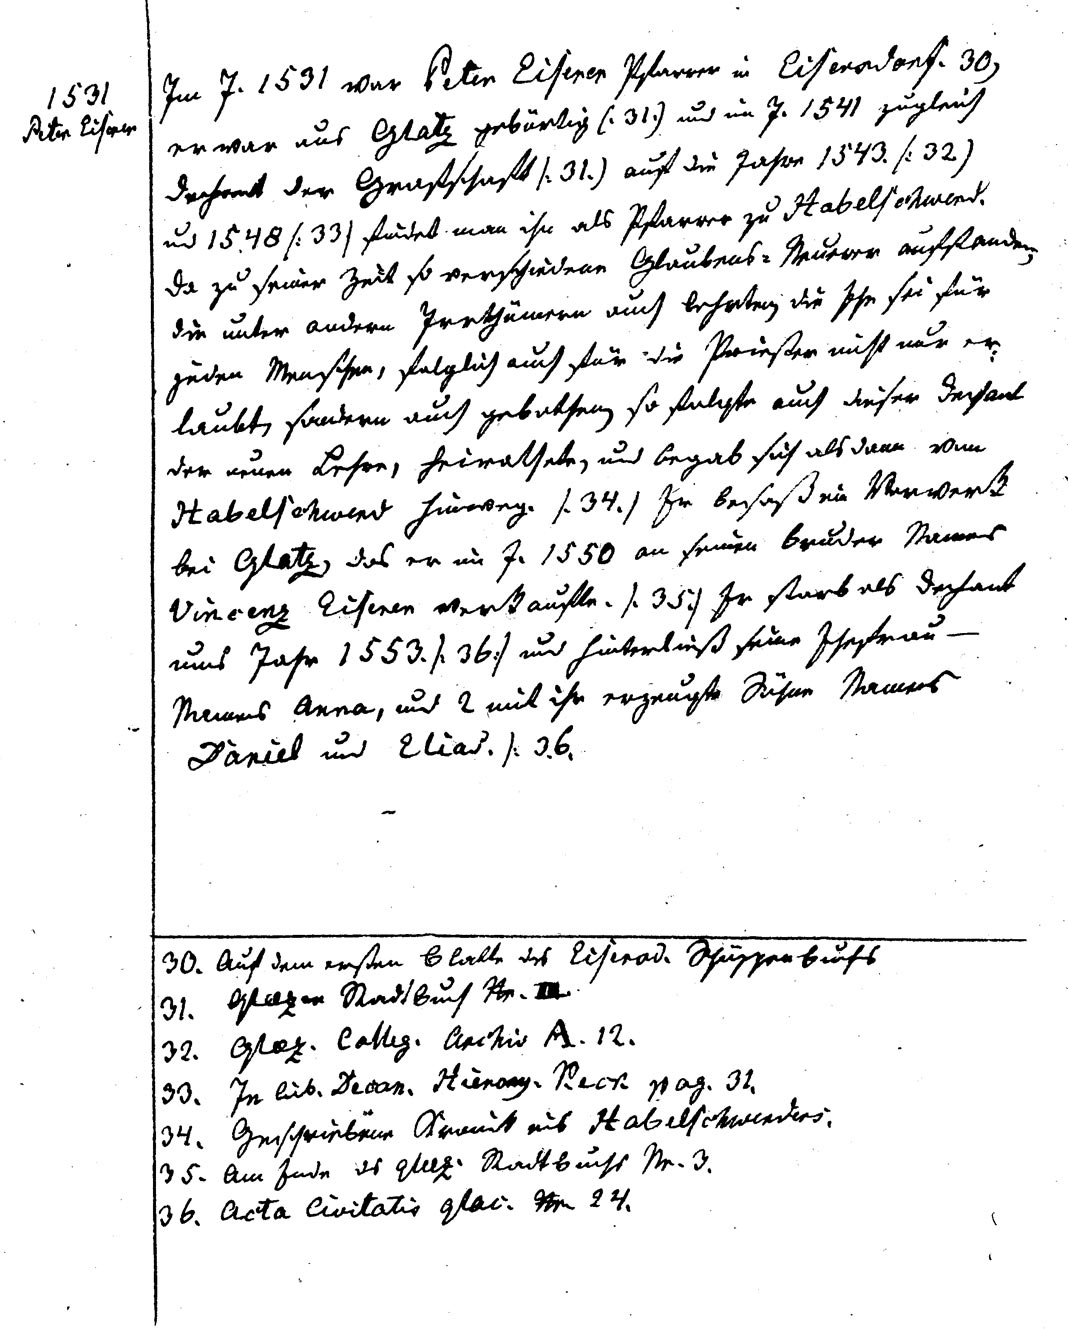 1531
Peter Eisner
Im J. 1531 war Peter Eisner Pfarrer in Eisersdorf. 30,
er war aus Glatz gebürtig (:31.) und im J. 1541 zugleich
Dechant der Grafschaft (:31.) auf die Jahre 1543. (:32)
und 1548 (:33) findet man ihn als Pfarrer zu Habelschwerd.
da zu seiner Zeit so verschiedene Glaubens=Neuerer aufstanden,
die unter andern Irrthümern auch lehrten, die Ehe sei für
jeden Menschen, folglich auch für die Priester nicht nur er=
laubt, sondern auch gebothen, so folgte auch dieser Dechant
der neuen Lehre, heirathete, und begab sich alsdann von
Habelschwerd hinweg. (:34.) Er besaß ein Vorwerk
bei Glatz, das er im J. 1550 an seinen Bruder Namens
Vincenz Eisner verkaufte. (:35:) Er starb als Dechant
ums Jahr 1553. (:36:) und hinterließ seine Ehefrau —
Namens Anna, und 2 mit ihr erzeugte Söhne Namens
Daniel und Elias. (:36.
30. Auf dem ersten Blatte des Eisersd. Schöppenbuchs
31. Glatzer Stadtbuch Nr. III.
32. Glaz. Colleg. Archiv A. 12.
33. In lib. Decan. Hierony. Keck pag. 31.
34. Geschriebene Kronik aus Habelschwerdes.
35. Am Ende des glaz. Stadtbuchs Nr. 3.
36. Acta Civitatis glac. Nr. 24.